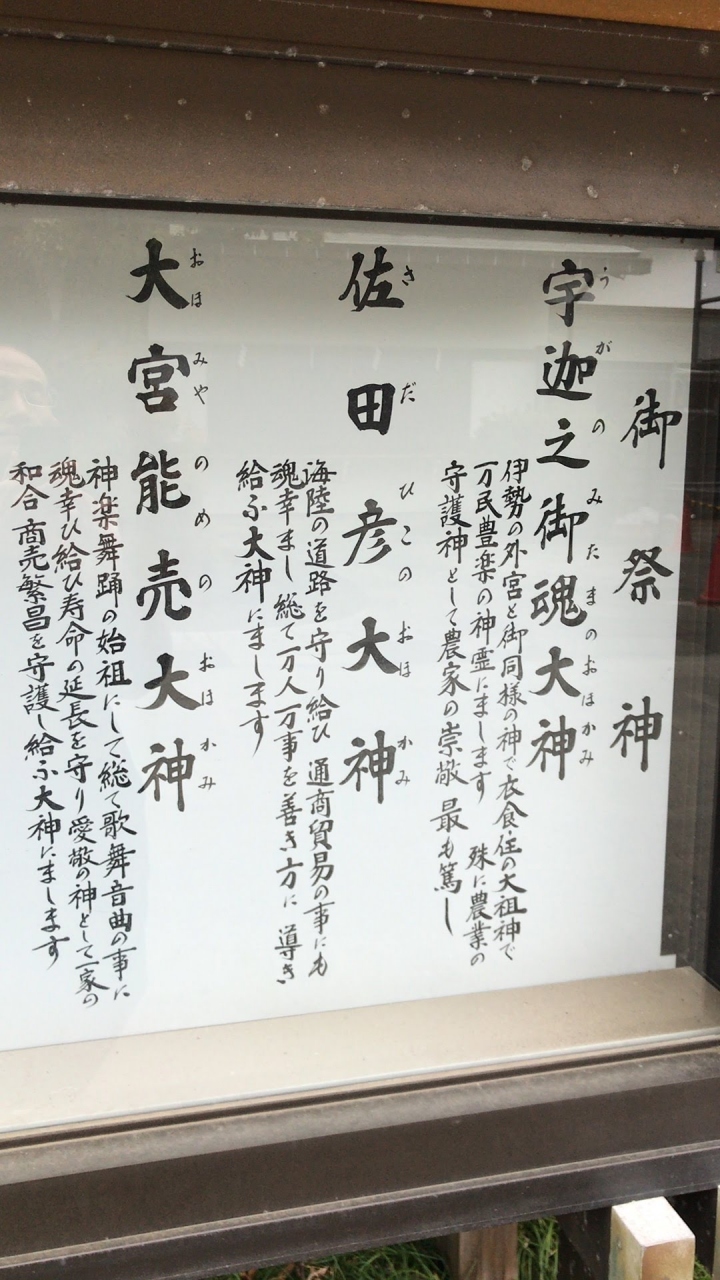 御祭神
宇迦之御魂大神
うがのみたまのおほかみ
伊勢の外宮と御同様の神で衣食住の大祖神で
万民豊楽の神霊にまします 殊に農業の
守護神として農家の崇敬最も篤し
佐田彦大神
さだひこのおほかみ
海陸の道路を守り給ひ通商貿易の事にも
魂幸まし総て万人万事を善き方に導き
給ふ大神にまします
大宮能売大神
おほみやのめのおほかみ
神楽舞踊の始祖にして総て歌舞音曲の事に
魂幸ひ給ひ寿命の延長を守り愛敬の神として一家の
和合商売繁昌を守護し給ふ大神にまします